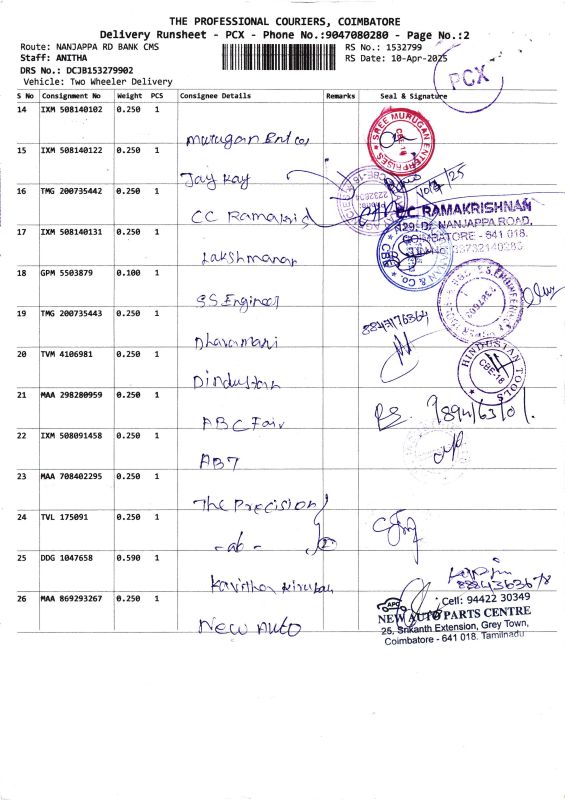 THE PROFESSIONAL COURIERS, COIMBATORE
Delivery Runsheet - PCX - Phone No.:9047080280 - Page No.:2
Route: NANJAPPA RD BANK CMS
RS No.: 1532799
Staff: ANITHA
RS Date: 10-Apr-2025
DRS No.: DCJB153279902
Vehicle: Two Wheeler Delivery
PCX
S No Consignment No Weight PCS Consignee Details Remarks Seal & Signature
14 IXM 508140102 0.250 1
Murugan Ent
SREE MURUGAN ENTERPRISES
15 IXM 508140122 0.250 1
Jay Kay
16 TMG 200735442 0.250 1
CC Ramakris
10/4/25
C.C. RAMAKRISHNAN
NANJAPPA ROAD,
COIMBATORE - 641 018.
17 IXM 508140131 0.250 1
Lakshmanan
18 GPM 5503879 0.100 1
SS Engineer
19 TMG 200735443 0.250 1
Dharamani
20 TVM 4106981 0.250 1
Dindustan
HINDUSTAN TOOLS
CBE-18
21 MAA 298280959 0.250 1
ABC Fair
22 IXM 508091458 0.250 1
ABT
23 MAA 708402295 0.250 1
The Precision
24 TVL 175091 0.250 1
- do -
25 DDG 1047658 0.590 1
Kavitha
26 MAA 869293267 0.250 1
New Auto
APC
Cell: 94422 30349
NEW AUTO PARTS CENTRE
25, Srikanth Extension, Grey Town,
Coimbatore - 641 018. Tamilnadu